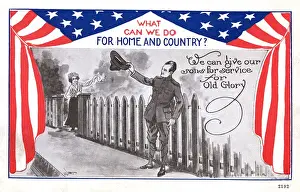 WHAT
CAN WE DO
FOR HOME AND COUNTRY?
We can give our
sons for service
for
Old Glory